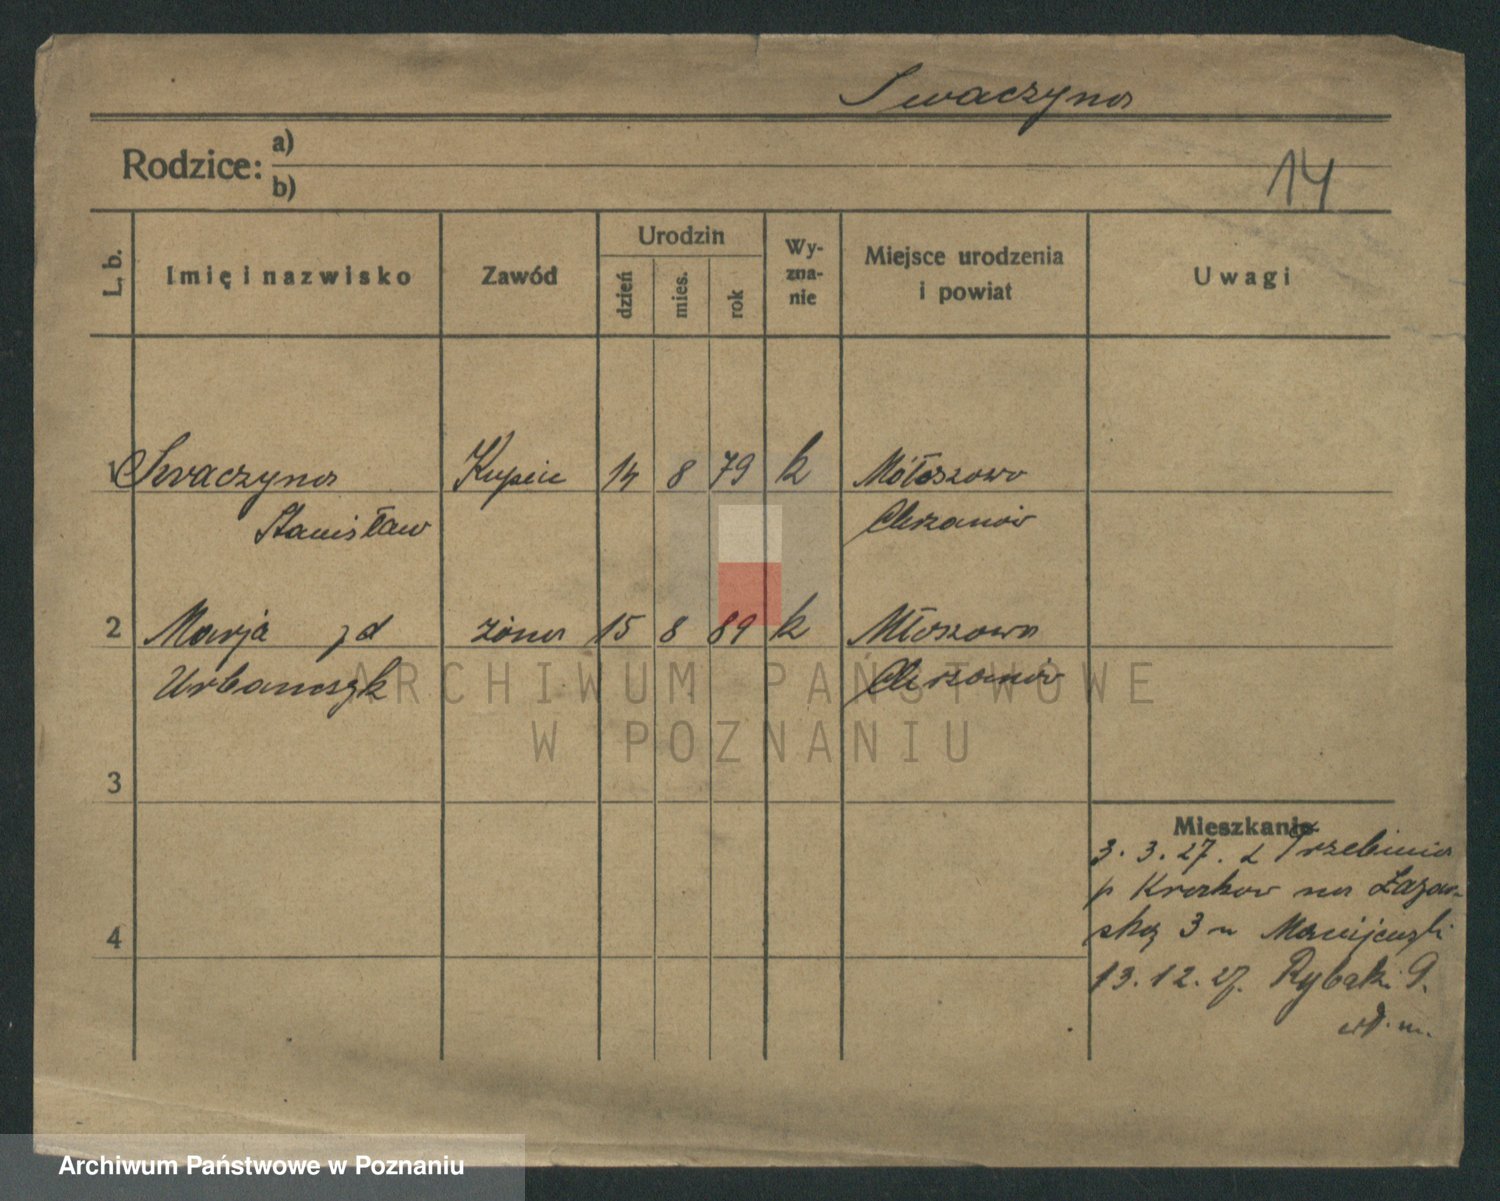 Swaczyna
Rodzice: a)
b)
14
L. b.
Imię i nazwisko
Zawód
Urodzin
dzień
mies.
rok
Wy-
zna-
nie
Miejsce urodzenia
i powiat
Uwagi
1 Swaczyna Kupiec 14 8 79 k Młoszowo
Stanisław Chrzanów
2 Marja zd żona 15 8 89 k Młoszowa
Urbańczyk Chrzanów
3
4
Mieszkanie
3. 3. 27. z Trzebinia
p Krakow na Łazar-
ską 3 u
13. 12. 27. Rybaki 9.
ARCHIWUM PAŃSTWOWE
W POZNANIU
Archiwum Państwowe w Poznaniu